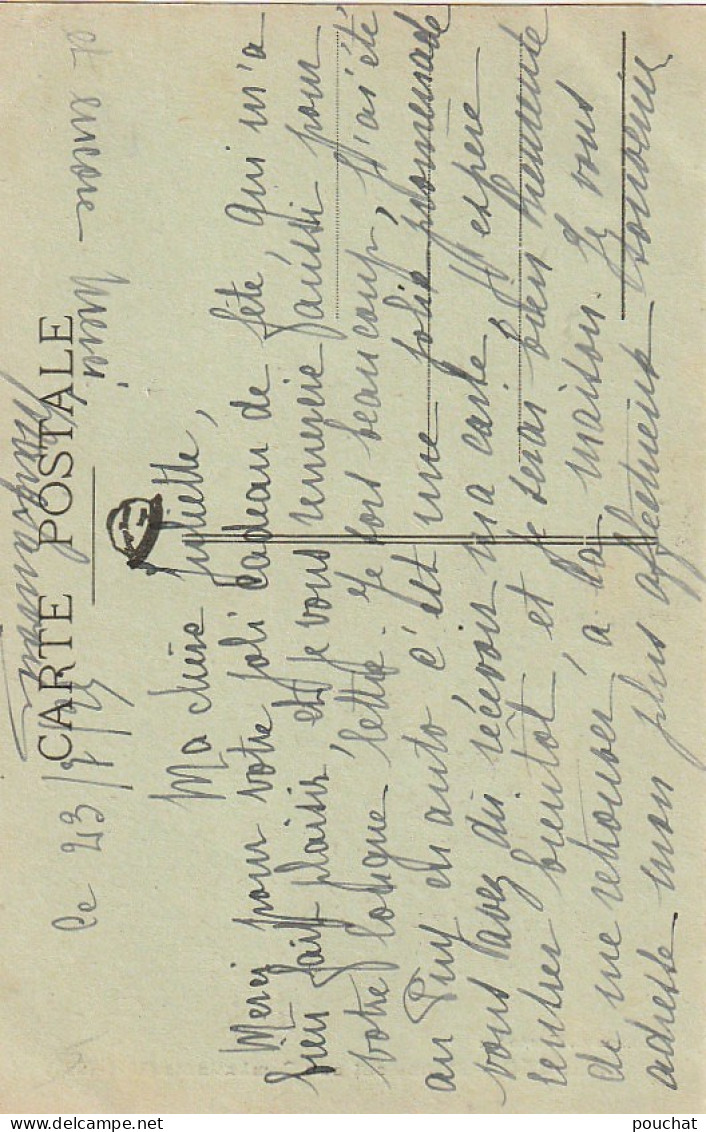 et encore merci
CARTE POSTALE
le 23/7/25
Ma chère Juliette,
Merci pour votre joli cadeau de fête, qui m'a
bien fait plaisir et je vous remercie aussi pour
votre longue lettre. Je sors beaucoup, J'ai été
au Puy en auto c'est une jolie promenade
vous avez dû recevoir ma carte, J'espère
rentrer bientôt et je serai bien heureuse
de me retrouver à la maison. Je vous
adresse mon plus affectueux souvenir
pouchat